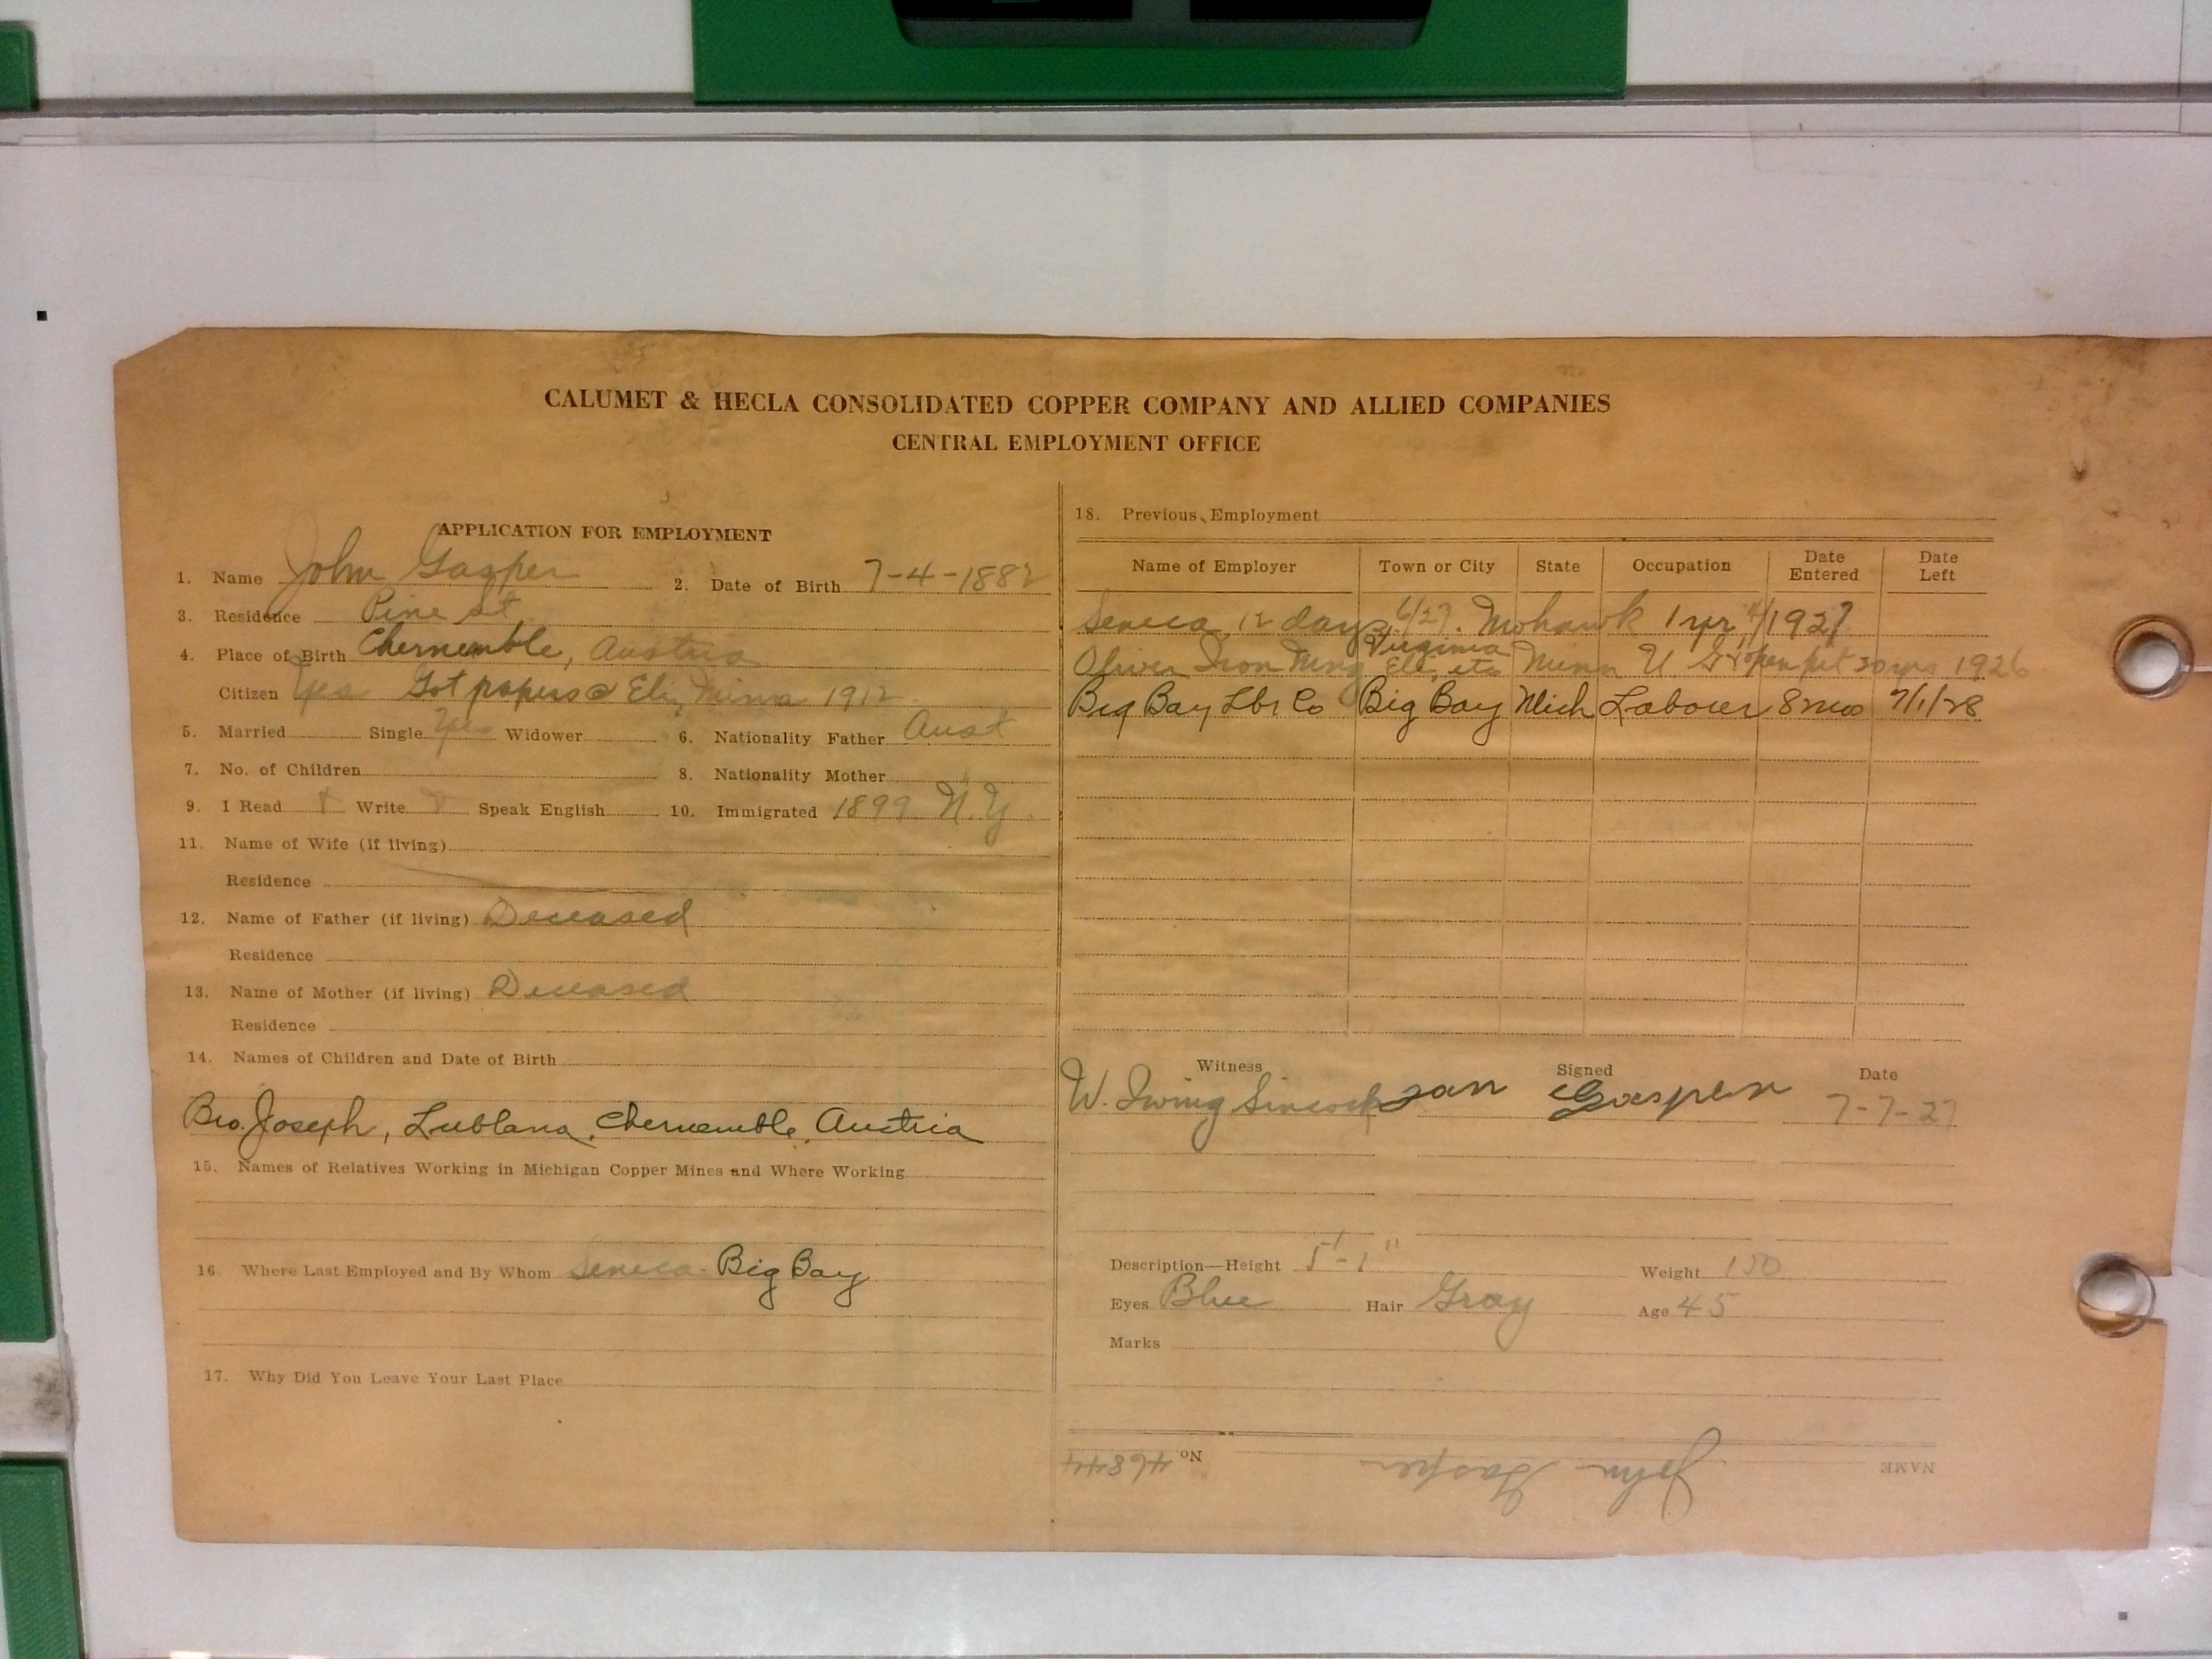 CALUMET & HECLA CONSOLIDATED COPPER COMPANY AND ALLIED COMPANIES
CENTRAL EMPLOYMENT OFFICE
APPLICATION FOR EMPLOYMENT
1. Name John Gasper 2. Date of Birth 7-4-1882
3. Residence Pine st
4. Place of Birth Chernemble, Austria
Citizen Yes Got papers @ Eli, Minna 1912
5. Married Single Yes Widower 6. Nationality Father Aust
7. No. of Children 8. Nationality Mother
9. I Read Write Speak English 10. Immigrated 1899 N.Y.
11. Name of Wife (if living)
Residence
12. Name of Father (if living) Deceased
Residence
13. Name of Mother (if living) Deceased
Residence
14. Names of Children and Date of Birth
Bro. Joseph, Lublana, Chernemble, Austria
15. Names of Relatives Working in Michigan Copper Mines and Where Working
16. Where Last Employed and By Whom Seneca - Big Bay
17. Why Did You Leave Your Last Place
18. Previous Employment
Name of Employer Town or City State Occupation Date Entered Date Left
Seneca, 12 days, 6/27. Mohawk 1 yr, 1927.
Virginia
Oliver Iron Mng Eli, etc Minn U G & open pit 20 yrs 1926
Big Bay Lbr Co Big Bay Mich Labourer 8 mos 7/1/28
Witness Signed Date
W. Irving Sincock Jan Gasper 7-7-27
Description—Height 5'-1" Weight 150
Eyes Blue Hair Gray Age 45
Marks
NAME John Gasper No. 46844